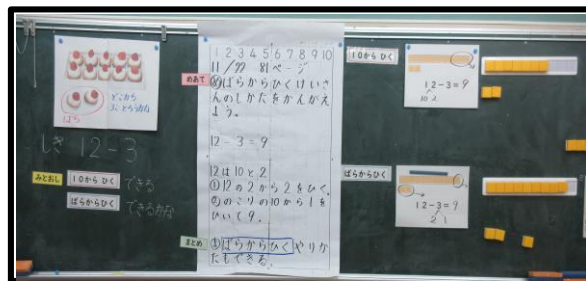 どこから
3こ とろうかな
ばら
しき 12-3
みとおし
10からひく できる
ばらからひく できるかな
1 2 3 4 5 6 7 8 9 10
11/22 81ページ
めあて
ばらからひくけいさ
んのしかたをかんがえ
よう。
12-3=9
12は10と2
①12の2から2をひく。
②のこりの10から1を
ひいて9。
まとめ
ばらからひくやりか
たもできる。
10からひく
12-3=9
10 2
ばらからひく
12-3=9
2 1